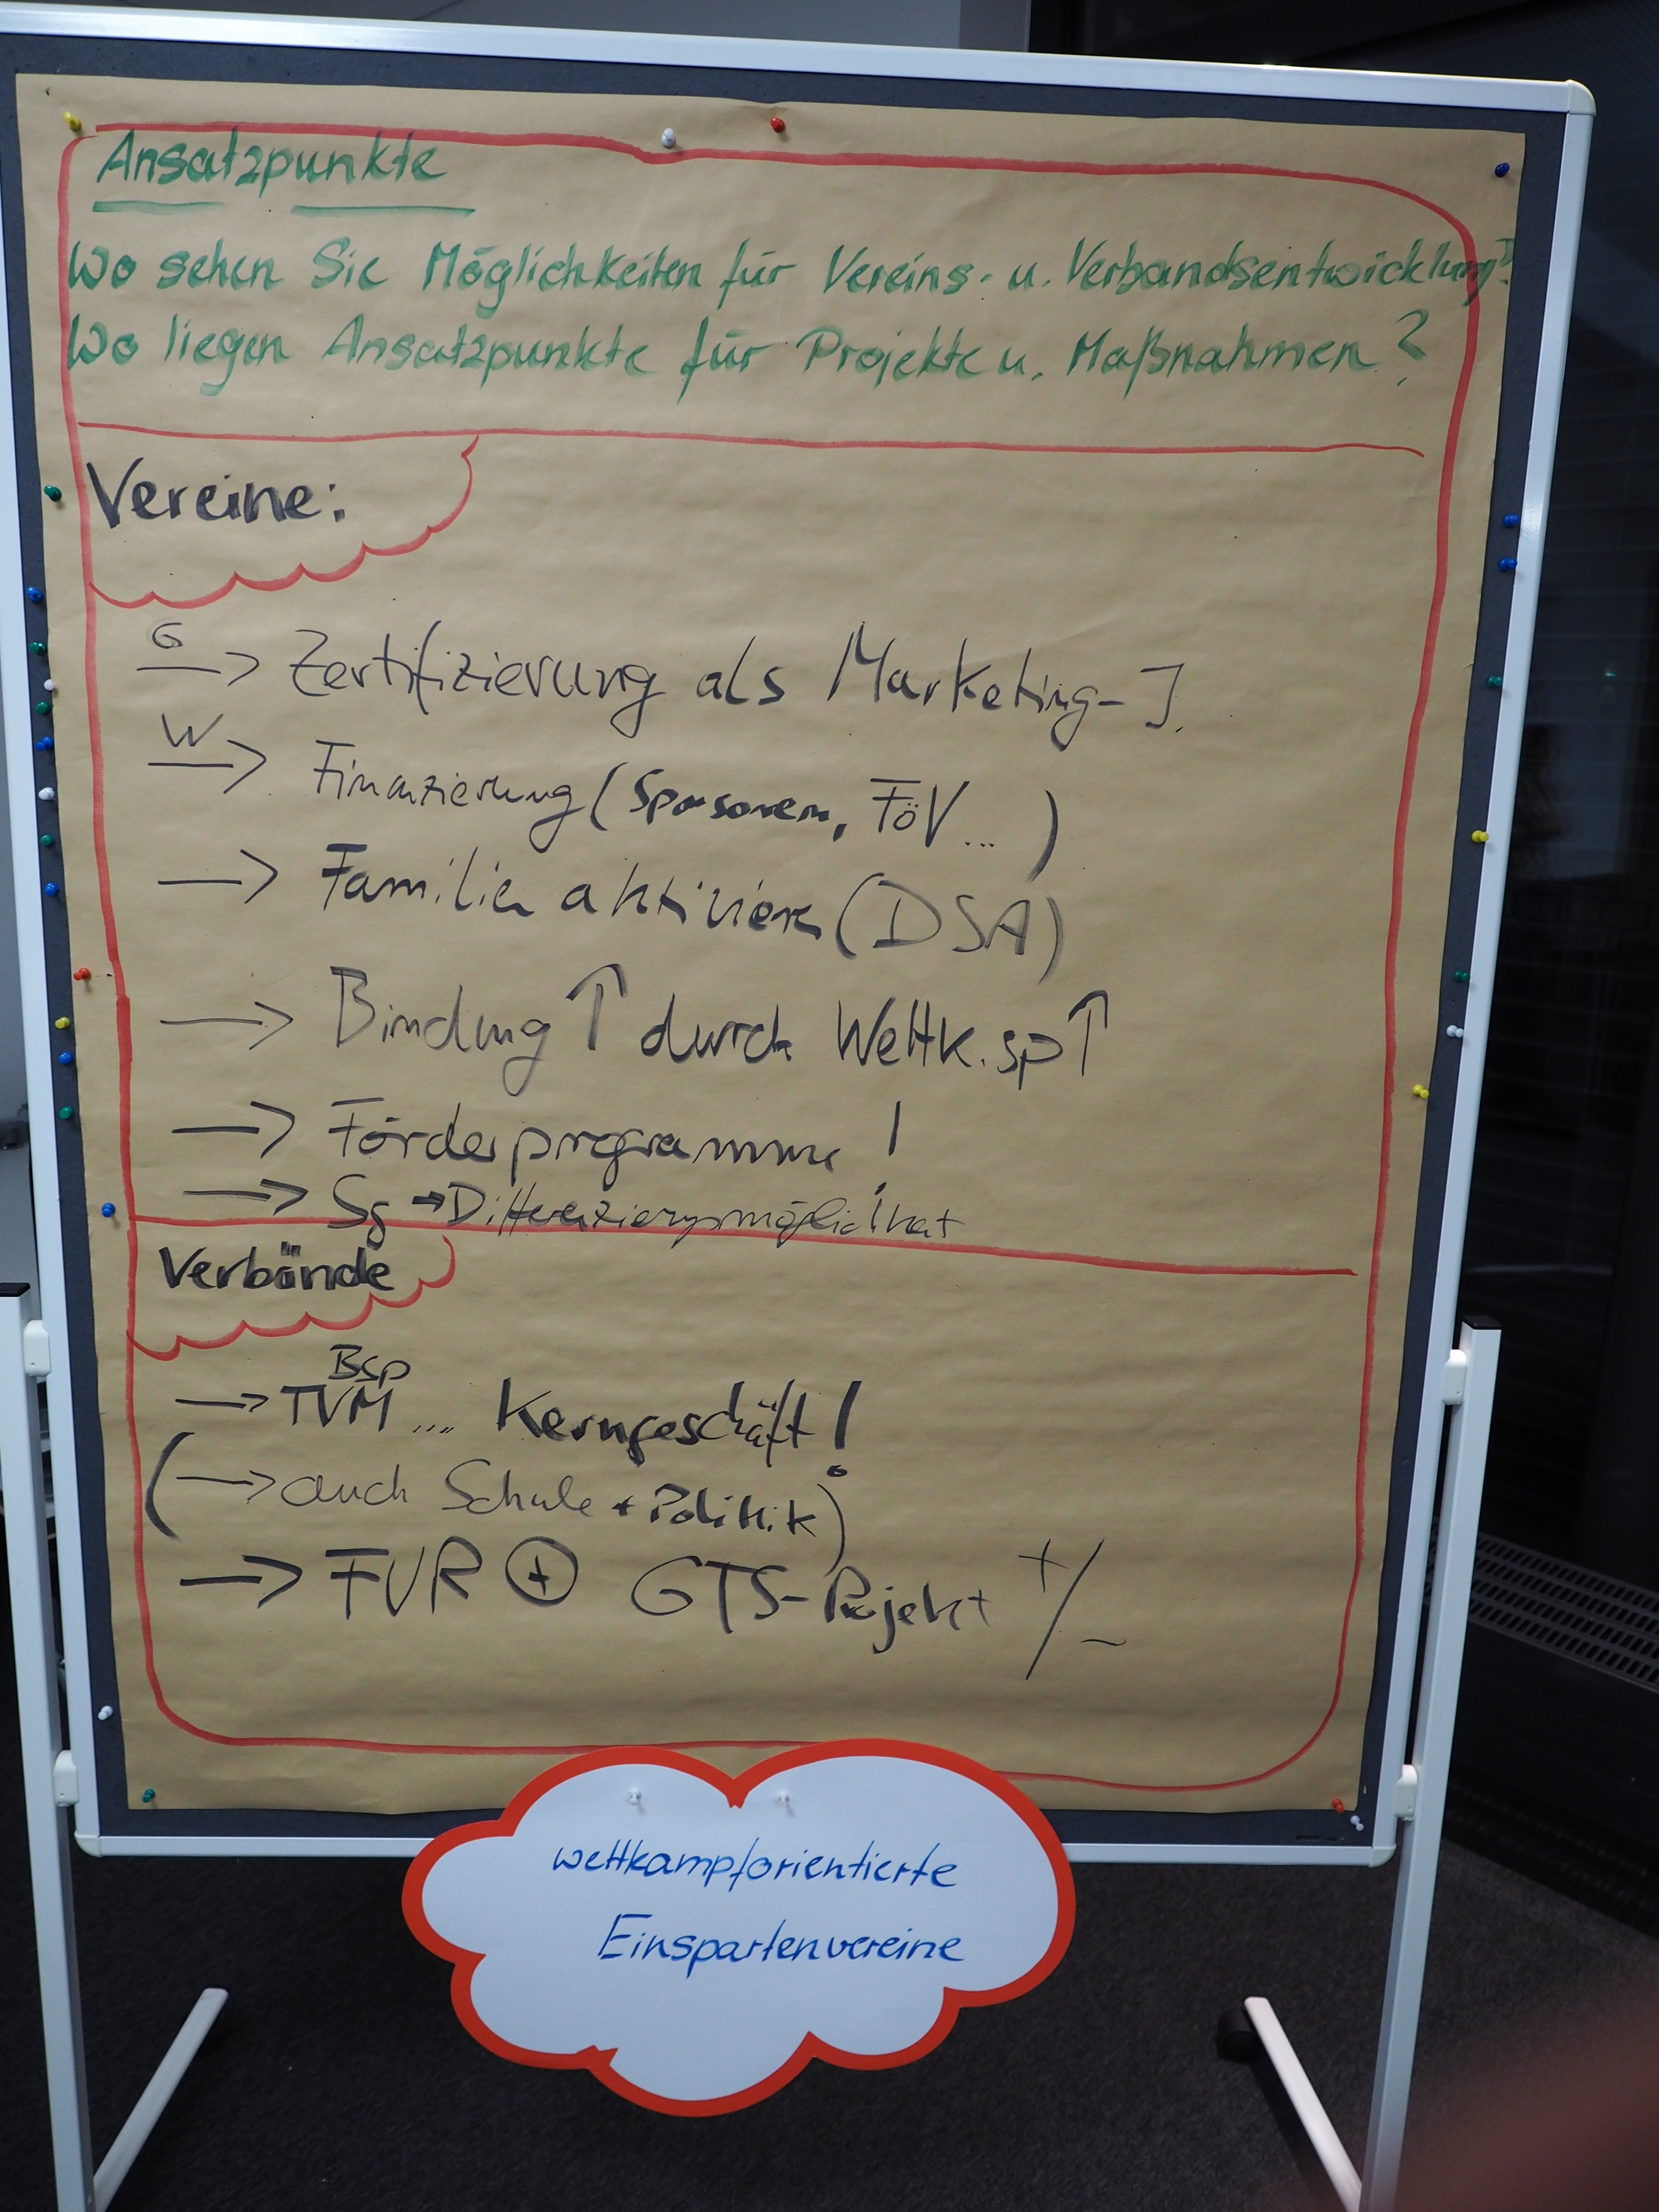 Ansatzpunkte
Wo sehen Sie Möglichkeiten für Vereins- u. Verbandsentwicklung?
Wo liegen Ansatzpunkte für Projekte u. Maßnahmen?
Vereine:
G
→ Zertifizierung als Marketing-I.
W
→ Finanzierung (Sponsoren, FöV ...)
→ Familien aktivieren (DSA)
→ Bindung ↑ durch Wettk.sp ↑
→ Förderprogramme!
→ Sg → Differenzierungsmöglichkeit
Verbände
Bsp
→ TVM .... Kerngeschäft!
(→ auch Schule + Politik)
→ FVR ⊕ GTS-Projekt +/-
wettkampforientierte
Einspartenvereine